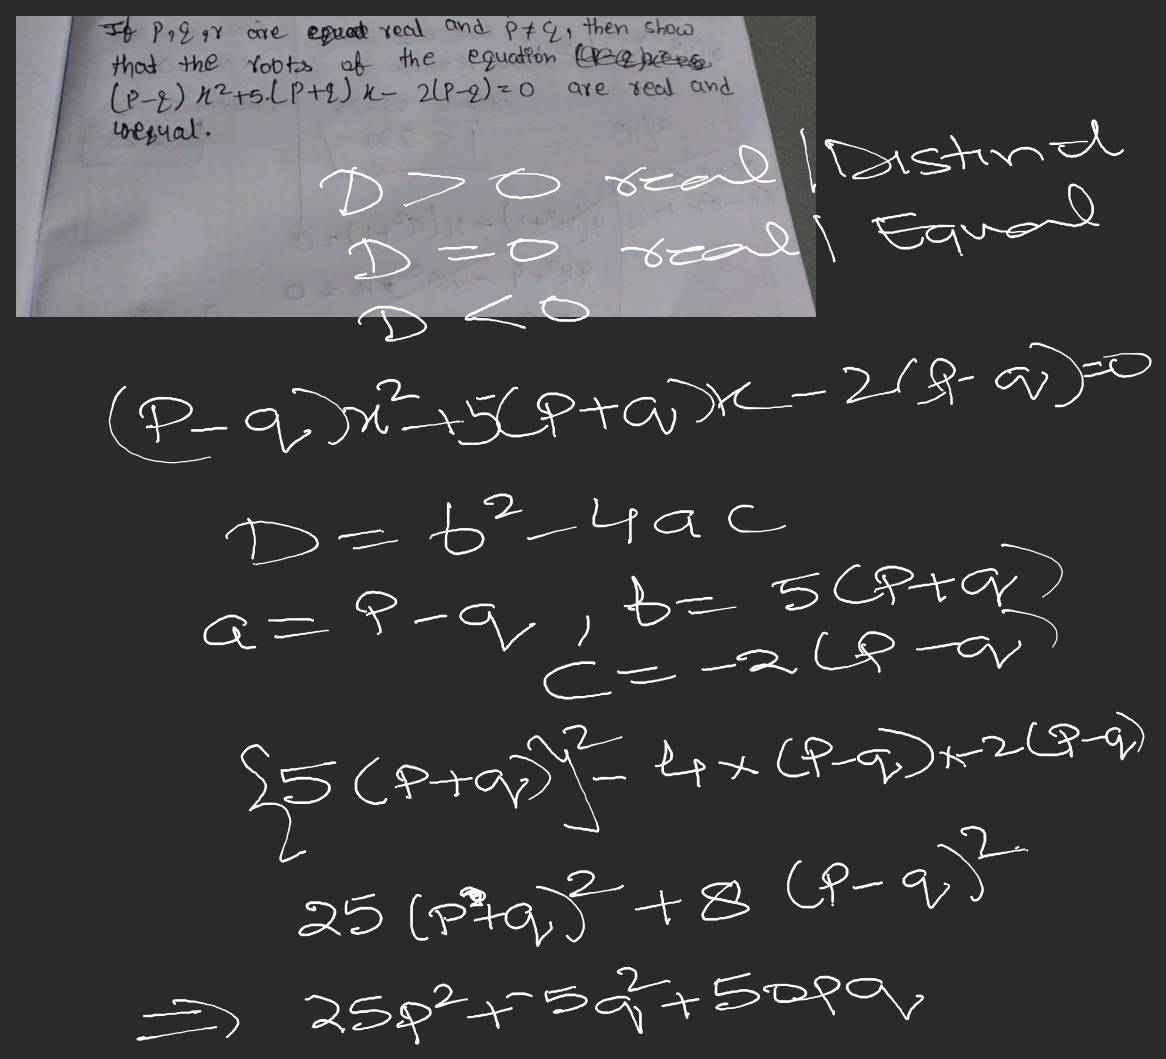 If p, q, r are real and p ≠ q, then show
that the roots of the equation
(p-q) x²+5.(p+q) x- 2(p-q)=0 are real and
unequal.
D > 0 real | Distinct
D = 0 real | Equal
D < 0
(P-q)x²+5(P+q)x-2(P-q)=0
D = b²-4ac
a = P-q, b = 5(P+q)
c = -2(P-q)
{5(P+q)}²- 4×(P-q)×-2(P-q)
25(p+q)²+8(P-q)²
⇒ 25p²+5q²+50pq